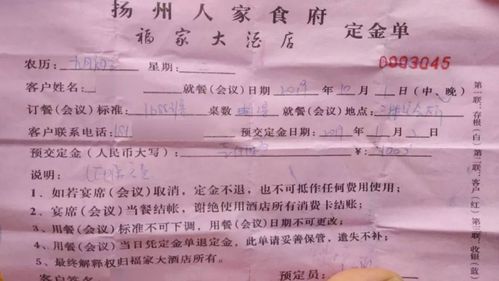 扬州人家食府 定金单
福家大酒店
农历: 九月初三 星期: 0003045
客户姓名: 就餐(会议)日期 2019 年 10 月 1 日(中、晚)
订餐(会议)标准: 1688/桌 桌数 就餐(会议)地点:
客户联系电话: 181 预交定金日期 2019 年 1 月 2 日
预交定金(人民币大写): ¥:
说明:
1、如若宴席(会议)取消,定金不退,也不可抵作任何费用使用;
2、宴席(会议)当餐结帐,谢绝使用酒店所有消费卡结账;
3、用餐(会议)标准不可下调,用餐(会议)日期不可更改;
4、用餐(会议)当日凭定金单退定金,此单请妥善保管,遗失不补;
5、最终解释权归福家大酒店所有。
客户签名 预定员:
第一联:存根(白)第二联:客户(红)第三联:收银(蓝)